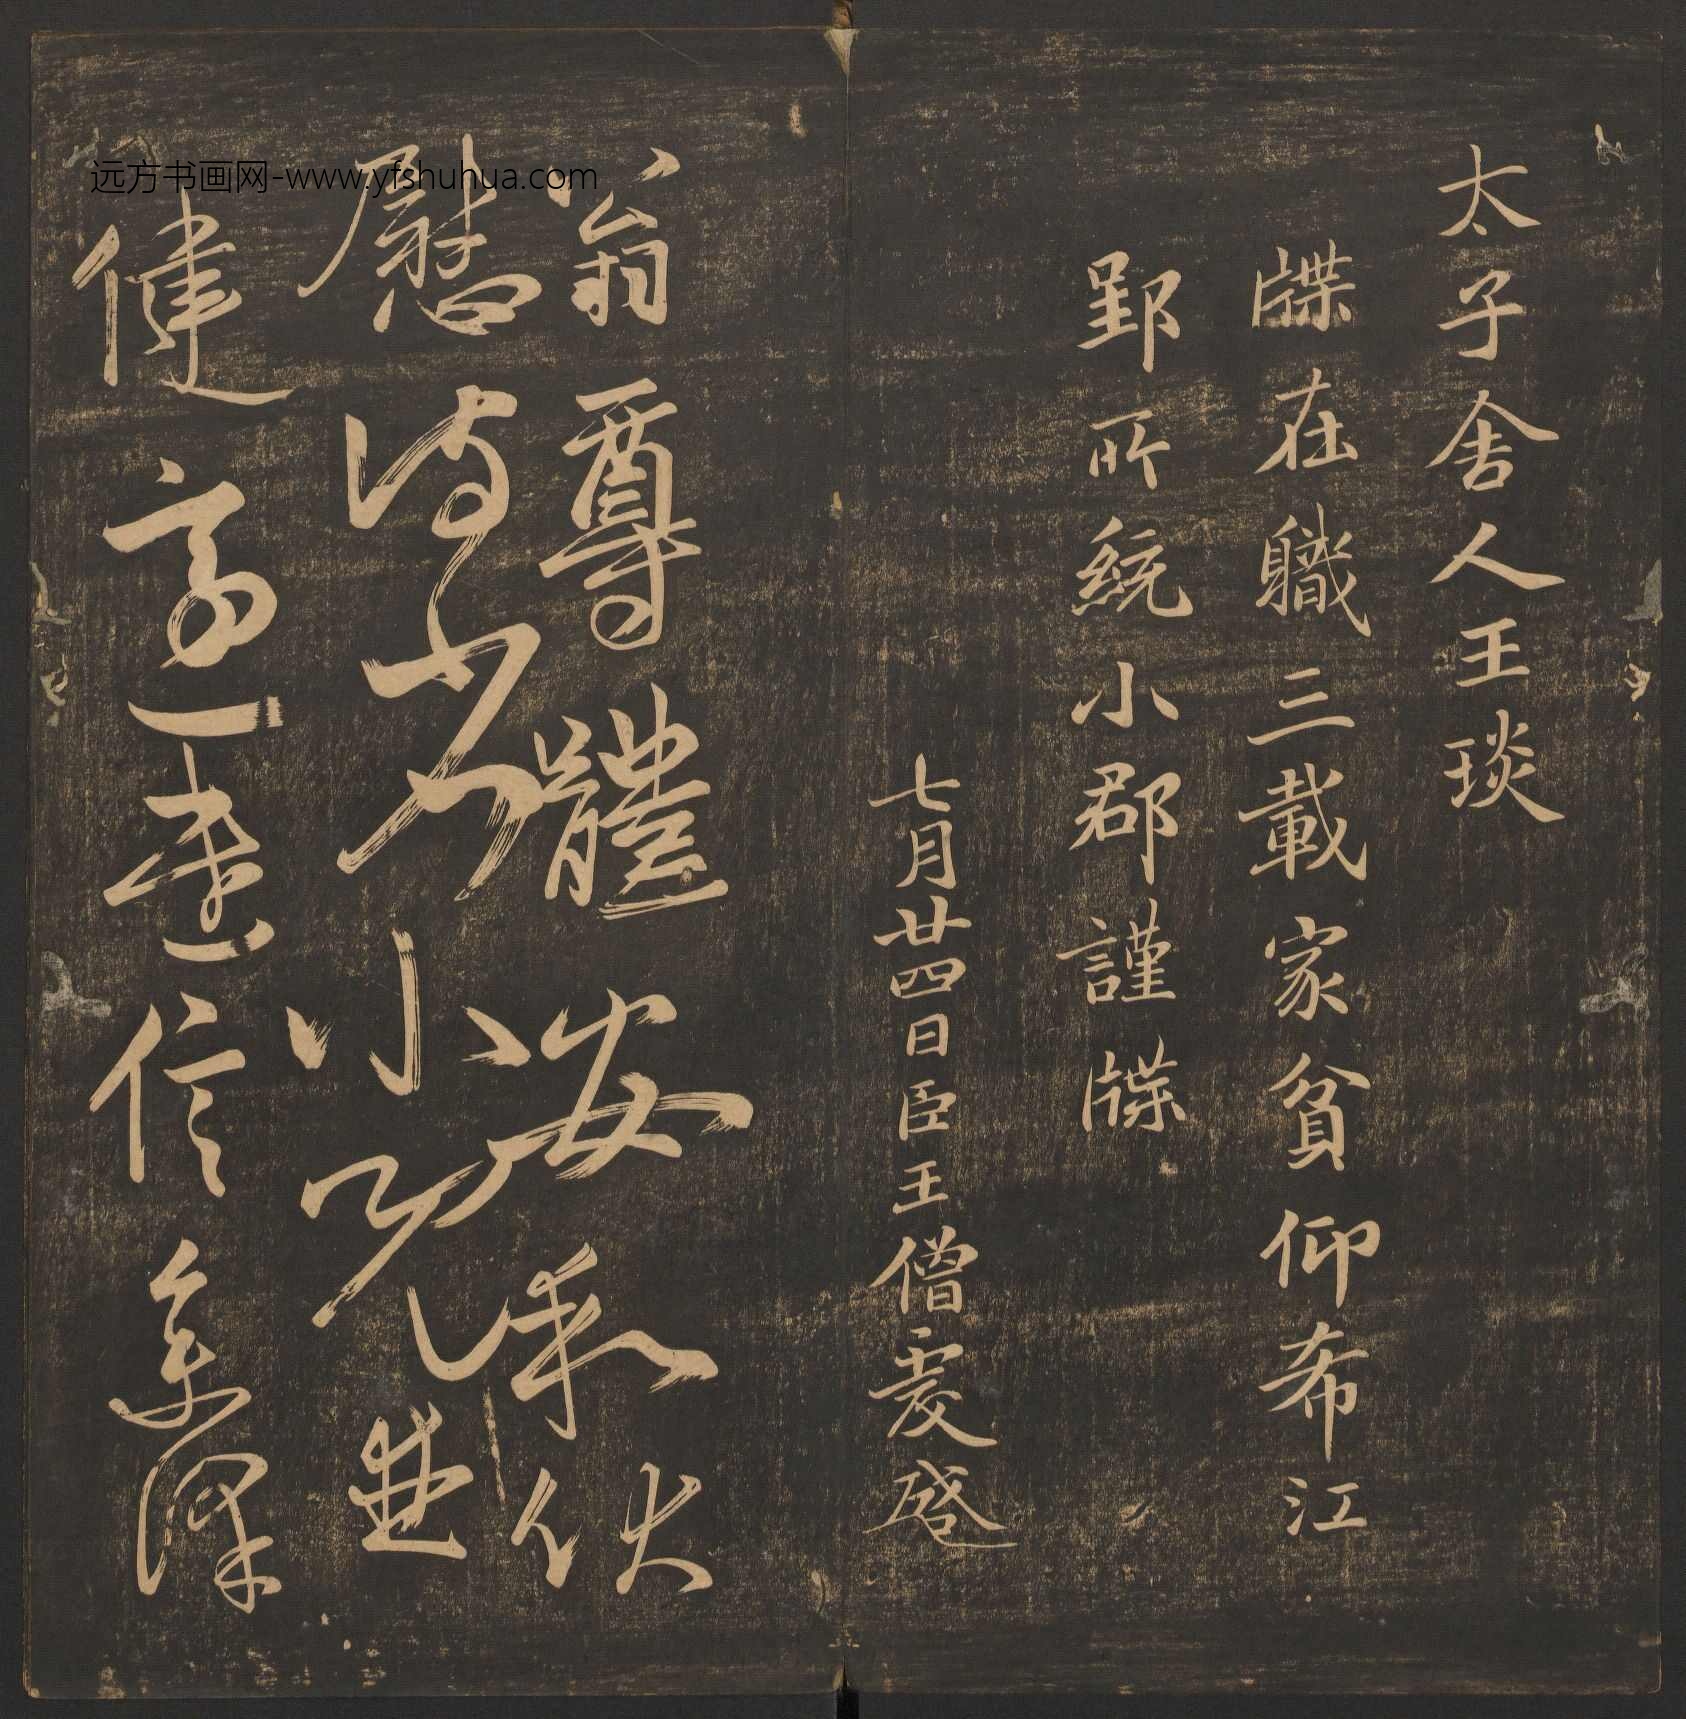 太子舍人王琰
牒在職三載家貧仰希江
郢所統小郡謹牒
七月廿四日臣王僧虔啓
翁尊體安和伏
慰侍劣小兒並
健適遣信集澤
远方书画网-www.yfshuhua.com